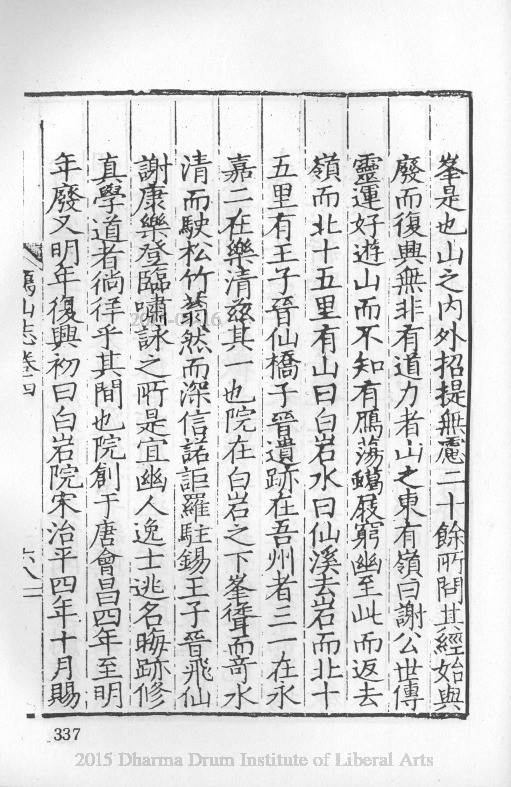 峯是也山之內外招提無慮二十餘所閤其經始與
廢而復興無非有道力者山之東有嶺曰謝公世傳
靈運好遊山而不知有鴈蕩蠟屐窮幽至此而返去
嶺而北十五里有山曰白岩水曰仙溪去岩而北十
五里有王子晉仙橋子晉遺跡在吾州者三一在永
嘉二在樂清茲其一也院在白岩之下峯聳而奇水
清而駛松竹蓊然而深信諾詎羅駐錫王子晉飛仙
謝康樂登臨嘯詠之所是宜幽人逸士逃名晦跡修
真學道者徜徉乎其間也院創于唐會昌四年至明
年廢又明年復興初曰白岩院宋治平四年十月賜
鴈山志卷四
六八
337
2015 Dharma Drum Institute of Liberal Arts